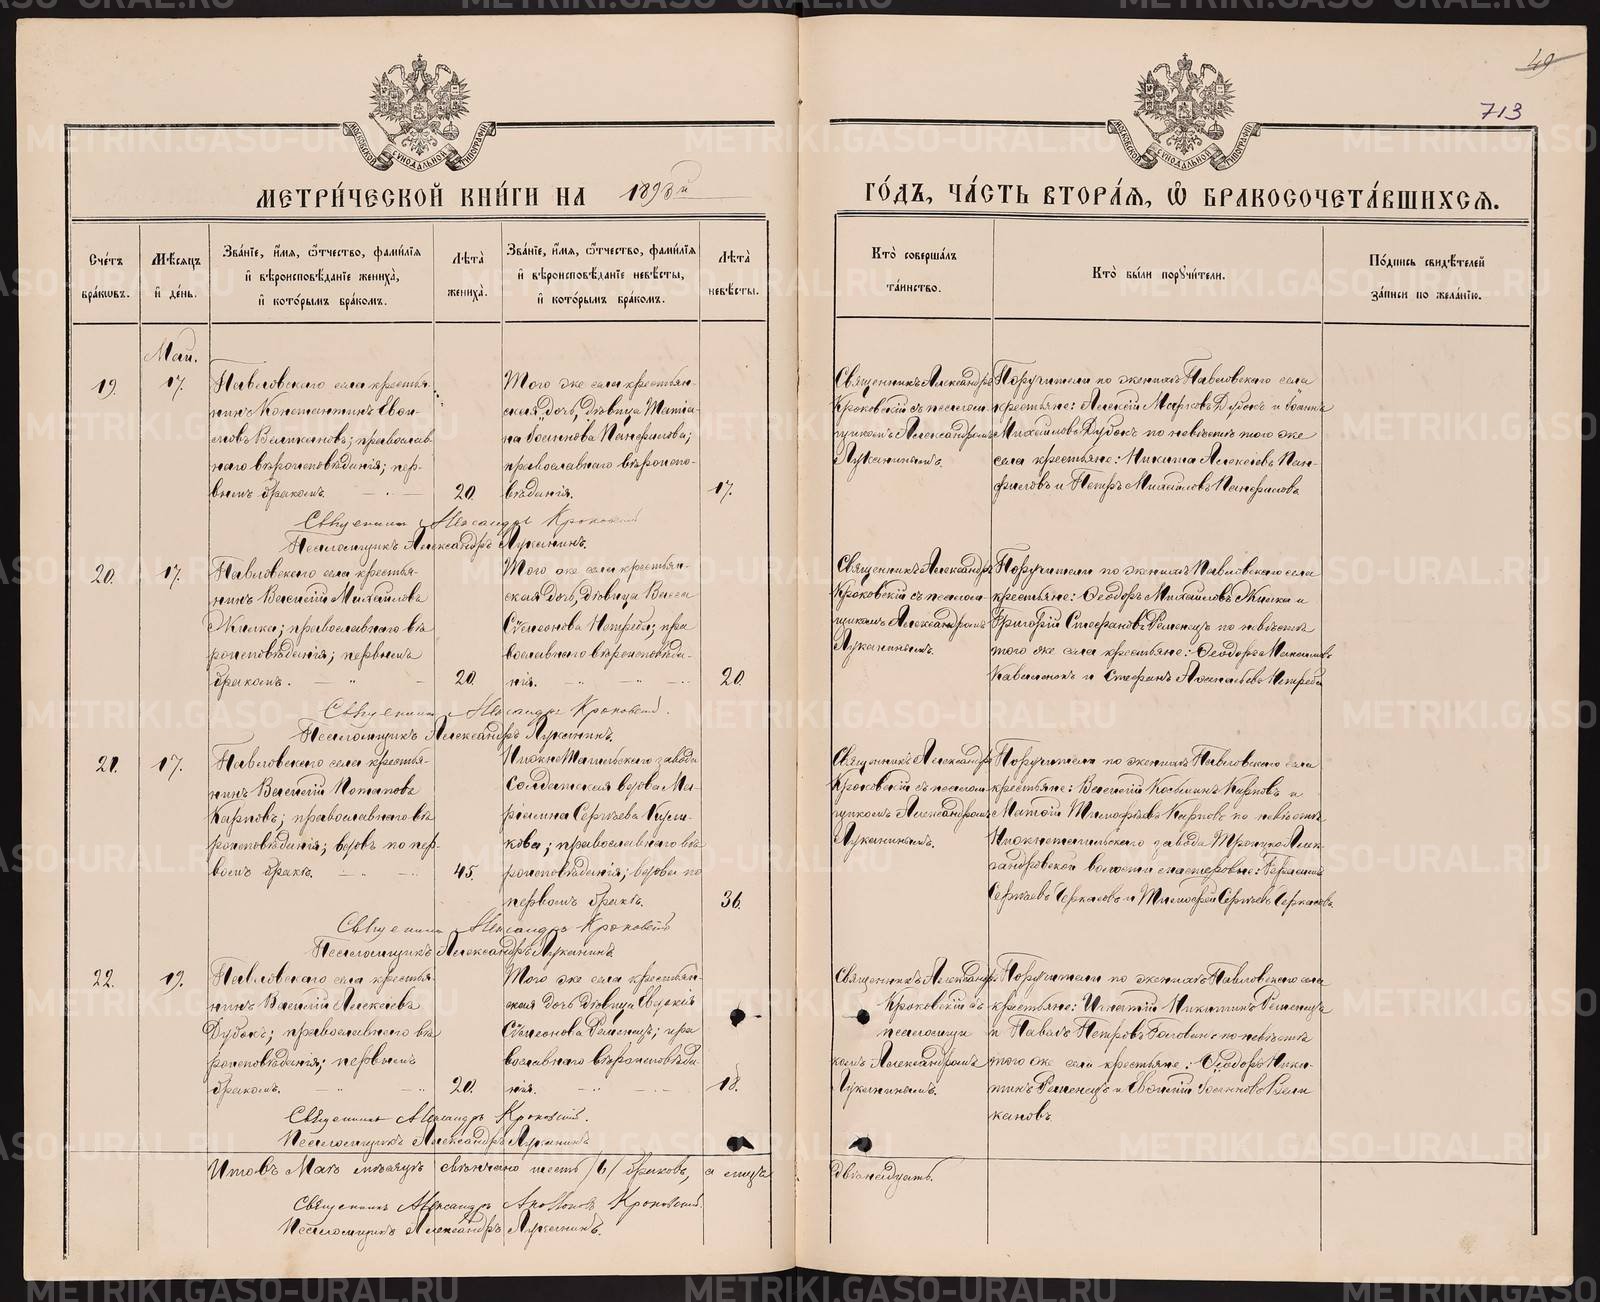 49
713
МЕТРИ́ЧЕСКОЙ КНИ́ГИ НА 1898й
ГО́ДЪ, ЧА́СТЬ ВТОРА́Я, Ѡ БРАКОСОЧЕТА́ВШИХСЯ.
Сче́тъ бра́кѡвъ.
Мѣ́сяцъ и де́нь.
Зва́нїе, и́мя, ѻ́тчество, фами́лїя и вѣроисповѣ́данїе жениха̀, и кото́рымъ бра́комъ.
Лѣ́та жениха̀.
Зва́нїе, и́мя, ѻ́тчество, фами́лїя и вѣроисповѣ́данїе невѣ́сты, и кото́рымъ бра́комъ.
Лѣ́та невѣ́сты.
Кто̀ соверша́лъ та́инство.
Кто̀ бы́ли порꙋчи́тели.
По́дпись свидѣ́телей за́писи по жела́нїю.
Май.
19.
17.
Павловскаго села крестья-
нинъ Константинъ Еван-
Великановъ; православ
наго вѣроисповѣданія; пер-
вымъ бракомъ.
20.
Того же села крестьян-
ская дочь, дѣвица Татіа-
на Іоаннова Панфилова;
православнаго вѣроиспо-
вѣданія.
17.
Священникъ Александръ
Кроковскій съ псалом
щикомъ Александромъ
Луканинымъ.
Поручители по женихѣ Павловскаго села
крестьяне: Алексій Марковъ Дубокъ и Іоаннъ
Михаиловъ Дубокъ по невѣстѣ того же
села крестьяне: Никита Алексѣевъ Пан-
филовъ и Петръ Михаиловъ Панфилова
Священникъ Александръ Кроковскій
Псаломщикъ Александръ Луканинъ.
20.
17.
Павловскаго села крестья-
нинъ Василій Михайловъ
Жилка; православнаго вѣ
роисповѣданія; первымъ
бракомъ.
20.
Того же села крестьян-
ская дочь, дѣвица Васса
Сѵмеонова Нетреба; пра
вославнаго вѣроисповѣда-
нія.
20.
Священникъ Александръ
Кроковскій съ псалом
щикомъ Александромъ
Луканинымъ.
Поручители по женихѣ Павловскаго села
крестьяне: Ѳеодоръ Михайловъ Жилка и
Григорій Стефановъ Ременецъ по невѣстѣ
того же села крестьяне: Ѳеодоръ Максимовъ
и Стефанъ Нетреба
Священникъ Александръ Кроковскій.
Псаломщикъ Александръ Луканинъ.
21.
17.
Павловскаго села крестья-
нинъ Василій Потаповъ
Карповъ; православнаго вѣ
роисповѣданія; вдовъ по пер-
вомъ бракѣ.
45.
Нижнетагильскаго завода
Солдатская вдова Ма-
Сергѣева Кули-
кова; православнаго вѣ
роисповѣданія; вдова по
первомъ бракѣ.
36.
Священникъ Александръ
Кроковскій съ псалом
щикомъ Александромъ
Луканинымъ.
Поручители по женихѣ Павловскаго села
крестьяне: Василій Косьминъ Карповъ и
Матѳій Тимофѣевъ Карповъ по невѣстѣ
Нижнетагильскаго завода Троицко Алек
сандровской волости мастеровые:
Сергѣевъ Черкасовъ и Тимофей Сергѣевъ Черкасовъ
Священникъ Александръ Кроковскій
Псаломщикъ Александръ Луканинъ.
22.
19.
Павловскаго села крестья-
нинъ Василій Алексѣевъ
Дубокъ; православнаго вѣ
роисповѣданія; первымъ
бракомъ.
20.
Того же села крестьян-
ская дочь дѣвица Евдокія
Сѵмеонова Ременецъ; пра
вославнаго вѣроисповѣда
нія.
18.
Священникъ Александръ
Кроковскій съ
псаломщи
комъ Александромъ
Луканинымъ.
Поручители по женихѣ Павловскаго села
крестьяне: Игнатій Никитинъ Ременецъ
и Павелъ Петровъ Головинъ по невѣстѣ
того же села крестьяне: Ѳеодоръ Ники-
тинъ Ременецъ и Евѳимій Іоанновъ Вели
кановъ.
Священникъ Александръ Кроковскій.
Псаломщикъ Александръ Луканинъ
Итого въ Маѣ мѣсяцѣ вѣнчано шесть /6/ браковъ, а лицъ
двѣнадцать.
Священникъ Александръ Аполлоновъ Кроковскій.
Псаломщикъ Александръ Луканинъ.
METRIKI.GASO-URAL.RU